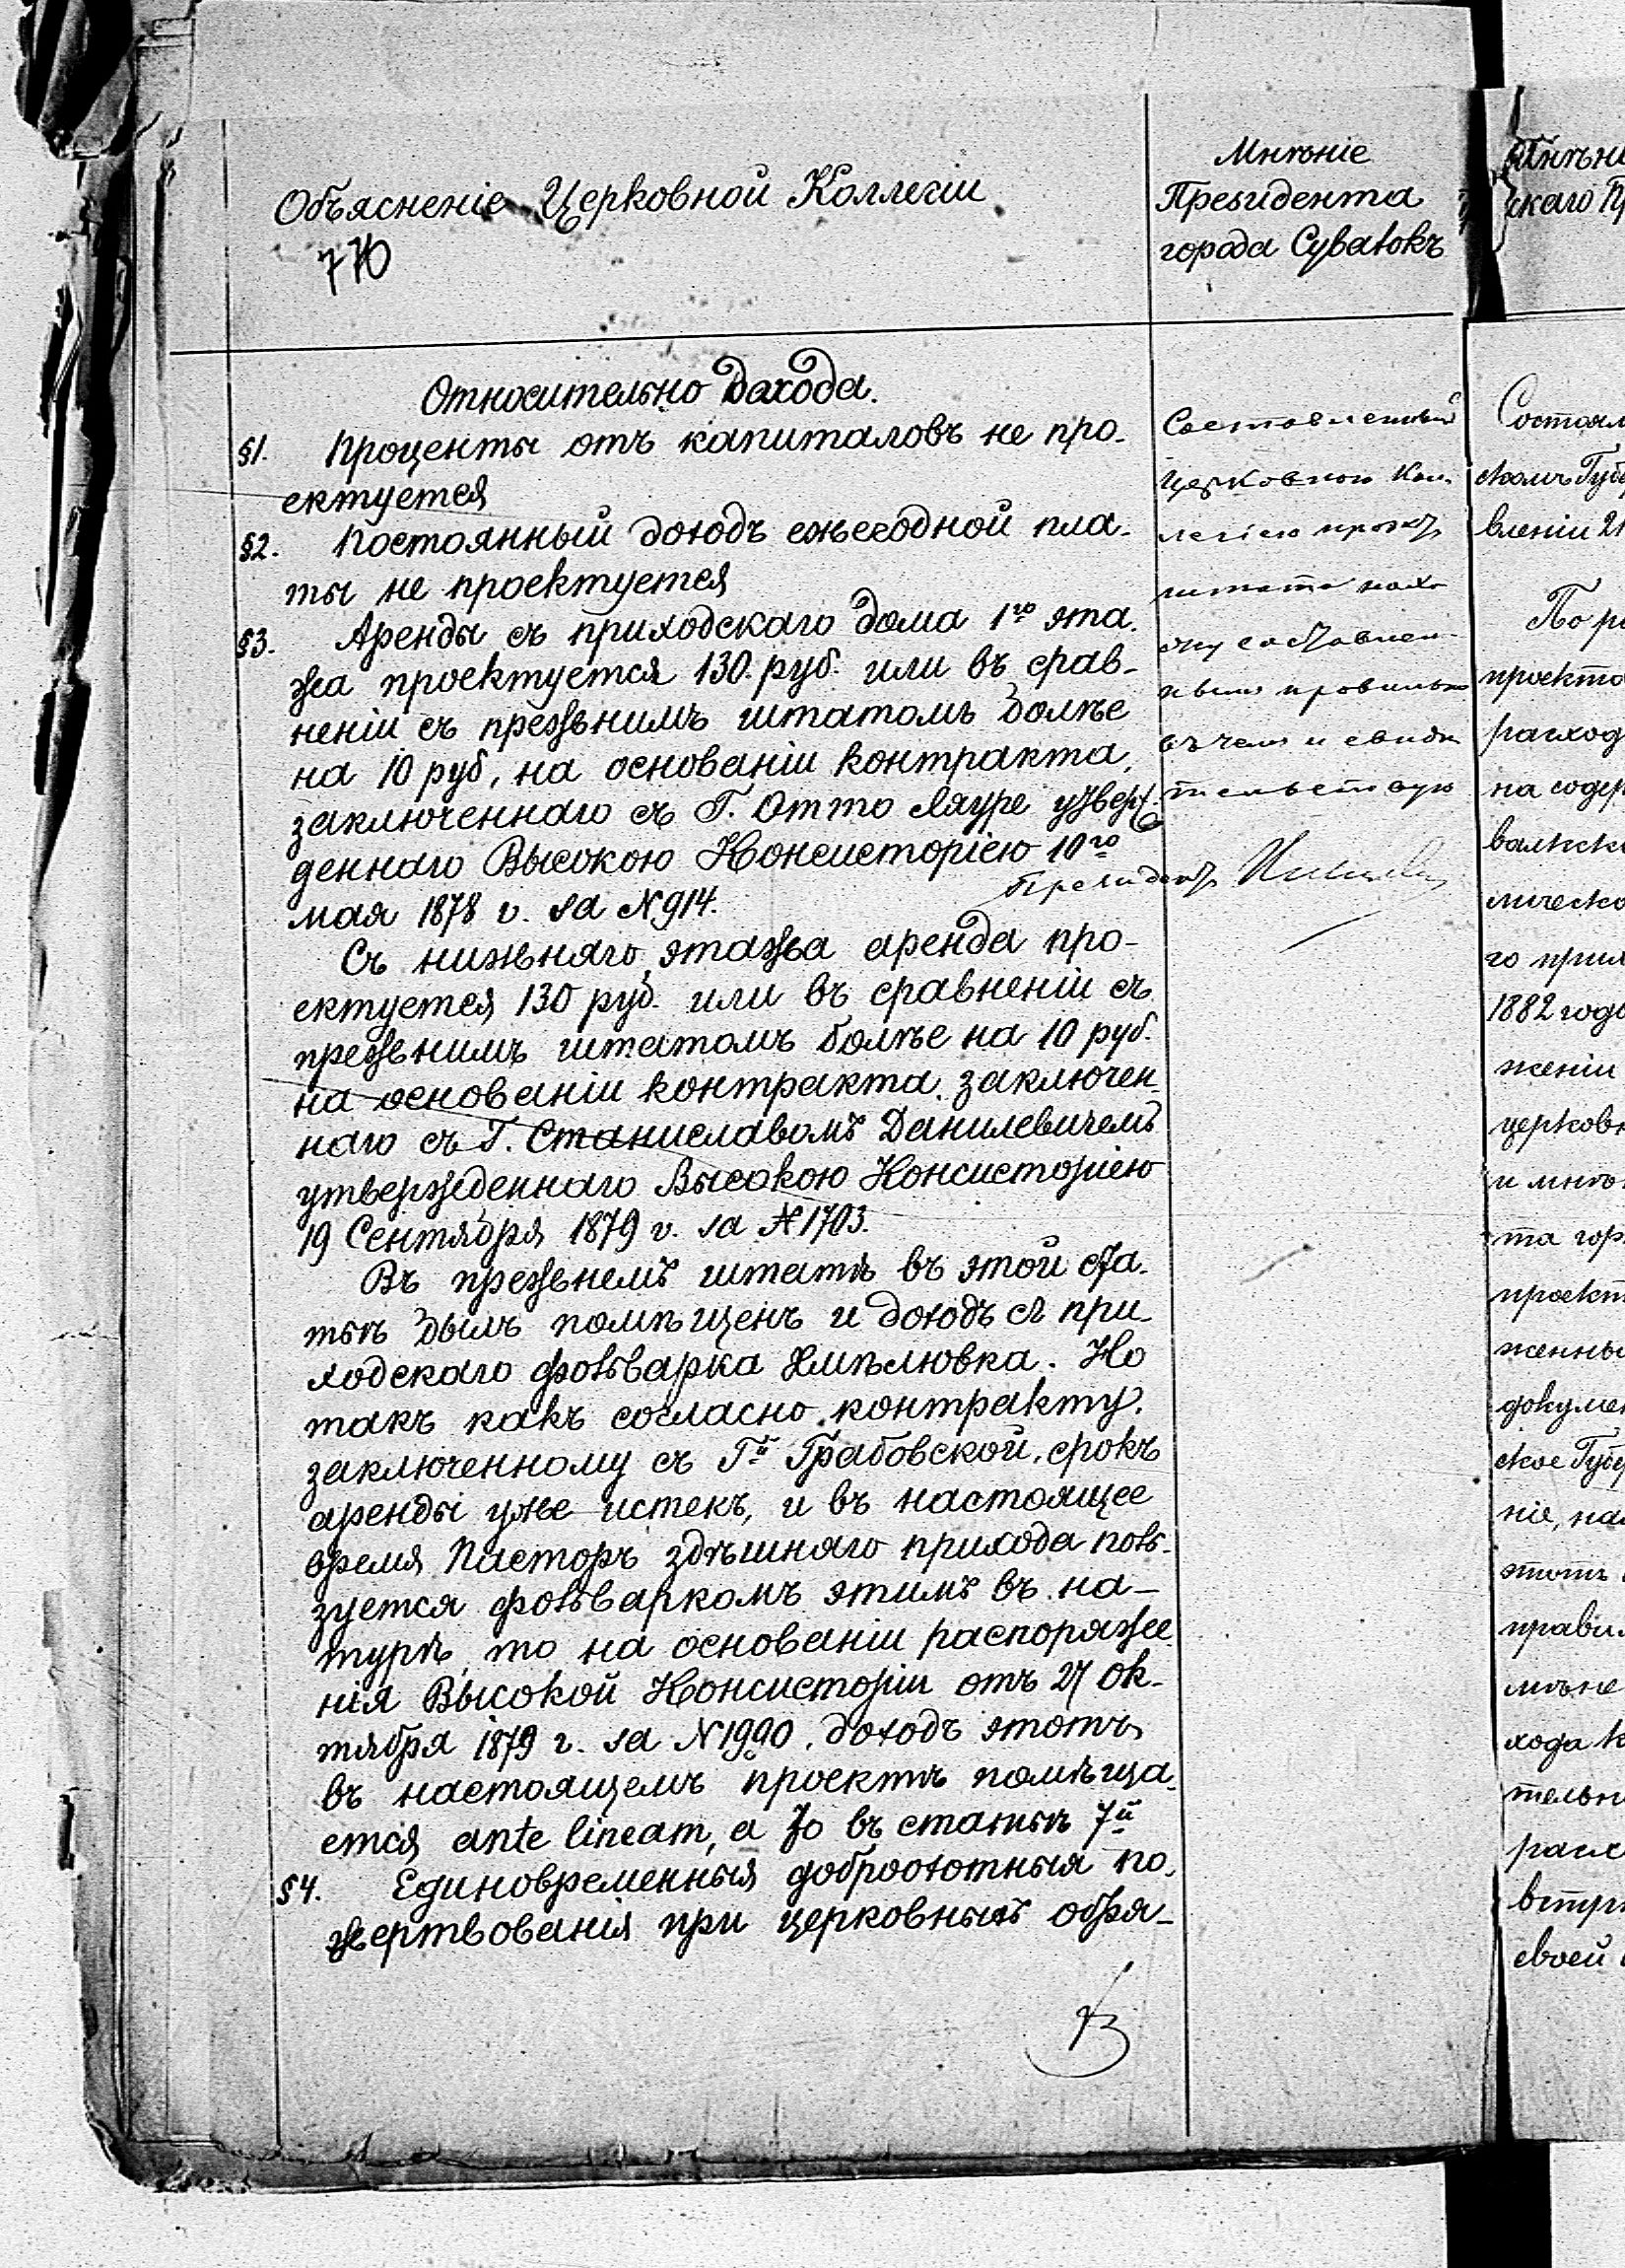 Объясненіе Церковной Коллегіи
770
Мнѣніе
Президента
города Сувалокъ
Относительно дахода.
§1. Проценты отъ капиталовъ не про-
ектуется
§2. Постоянный доходъ ежегодной пла-
ты не проектуется
§3. Аренды съ приходскаго дома 1го эта-
жа проектуется 130 руб. или въ срав-
неніи съ прежнимъ штатомъ болѣе
на 10 руб, на основаніи контракта,
заключеннаго съ Г. Отто Лауре утверж-
деннаго Высокою Консисторіею 10го
мая 1878 г. за №914.
Съ нижняго этажа аренда про-
ектуется 130 руб. или въ сравненіи съ
прежнимъ штатомъ болѣе на 10 руб.
на основаніи контракта, заключен-
наго съ Г. Станиславомъ Данилевичемъ
утвержденнаго Высокою Консисторіею
19 Сентября 1879 г. за №1703.
Въ прежнемъ штатѣ въ этой ста-
тьѣ былъ помѣщенъ и доходъ съ при-
ходскаго фольварка Хмѣлювка. Но
такъ какъ согласно контракту,
заключенному съ Гй Грабовской, срокъ
аренды уже истекъ, и въ настоящее
время Пасторъ здѣшняго прихода поль-
зуется фольваркомъ этимъ въ на-
турѣ, то на основаніи распоряже-
нія Высокой Консисторіи отъ 27 Ок-
тября 1879 г. за №1990, доходъ этотъ
въ настоящемъ проектѣ помѣща-
ется ante lineam, а то въ статьѣ 7й
§4. Единовременныя доброохотныя по-
жертвованія при церковныхъ обря-
Составленный
Церковною Кол-
легіею проектъ
штата нахо
жу составлен-
нымъ правильно
въ чемъ и свидѣ
тельствую
Президентъ
Мнѣні
скаго Пр
Состоял
скомъ Губе
вленіи 21
По ра
проекта
расход
на содер
валкска
лическа
го прих
1882 года
женіи
церковн
и мнѣн
та гор
проект
женны
докумен
ское Губер
ніе, на
этотъ
правил
мѣне
хода к
тельн
расх
втр
своей